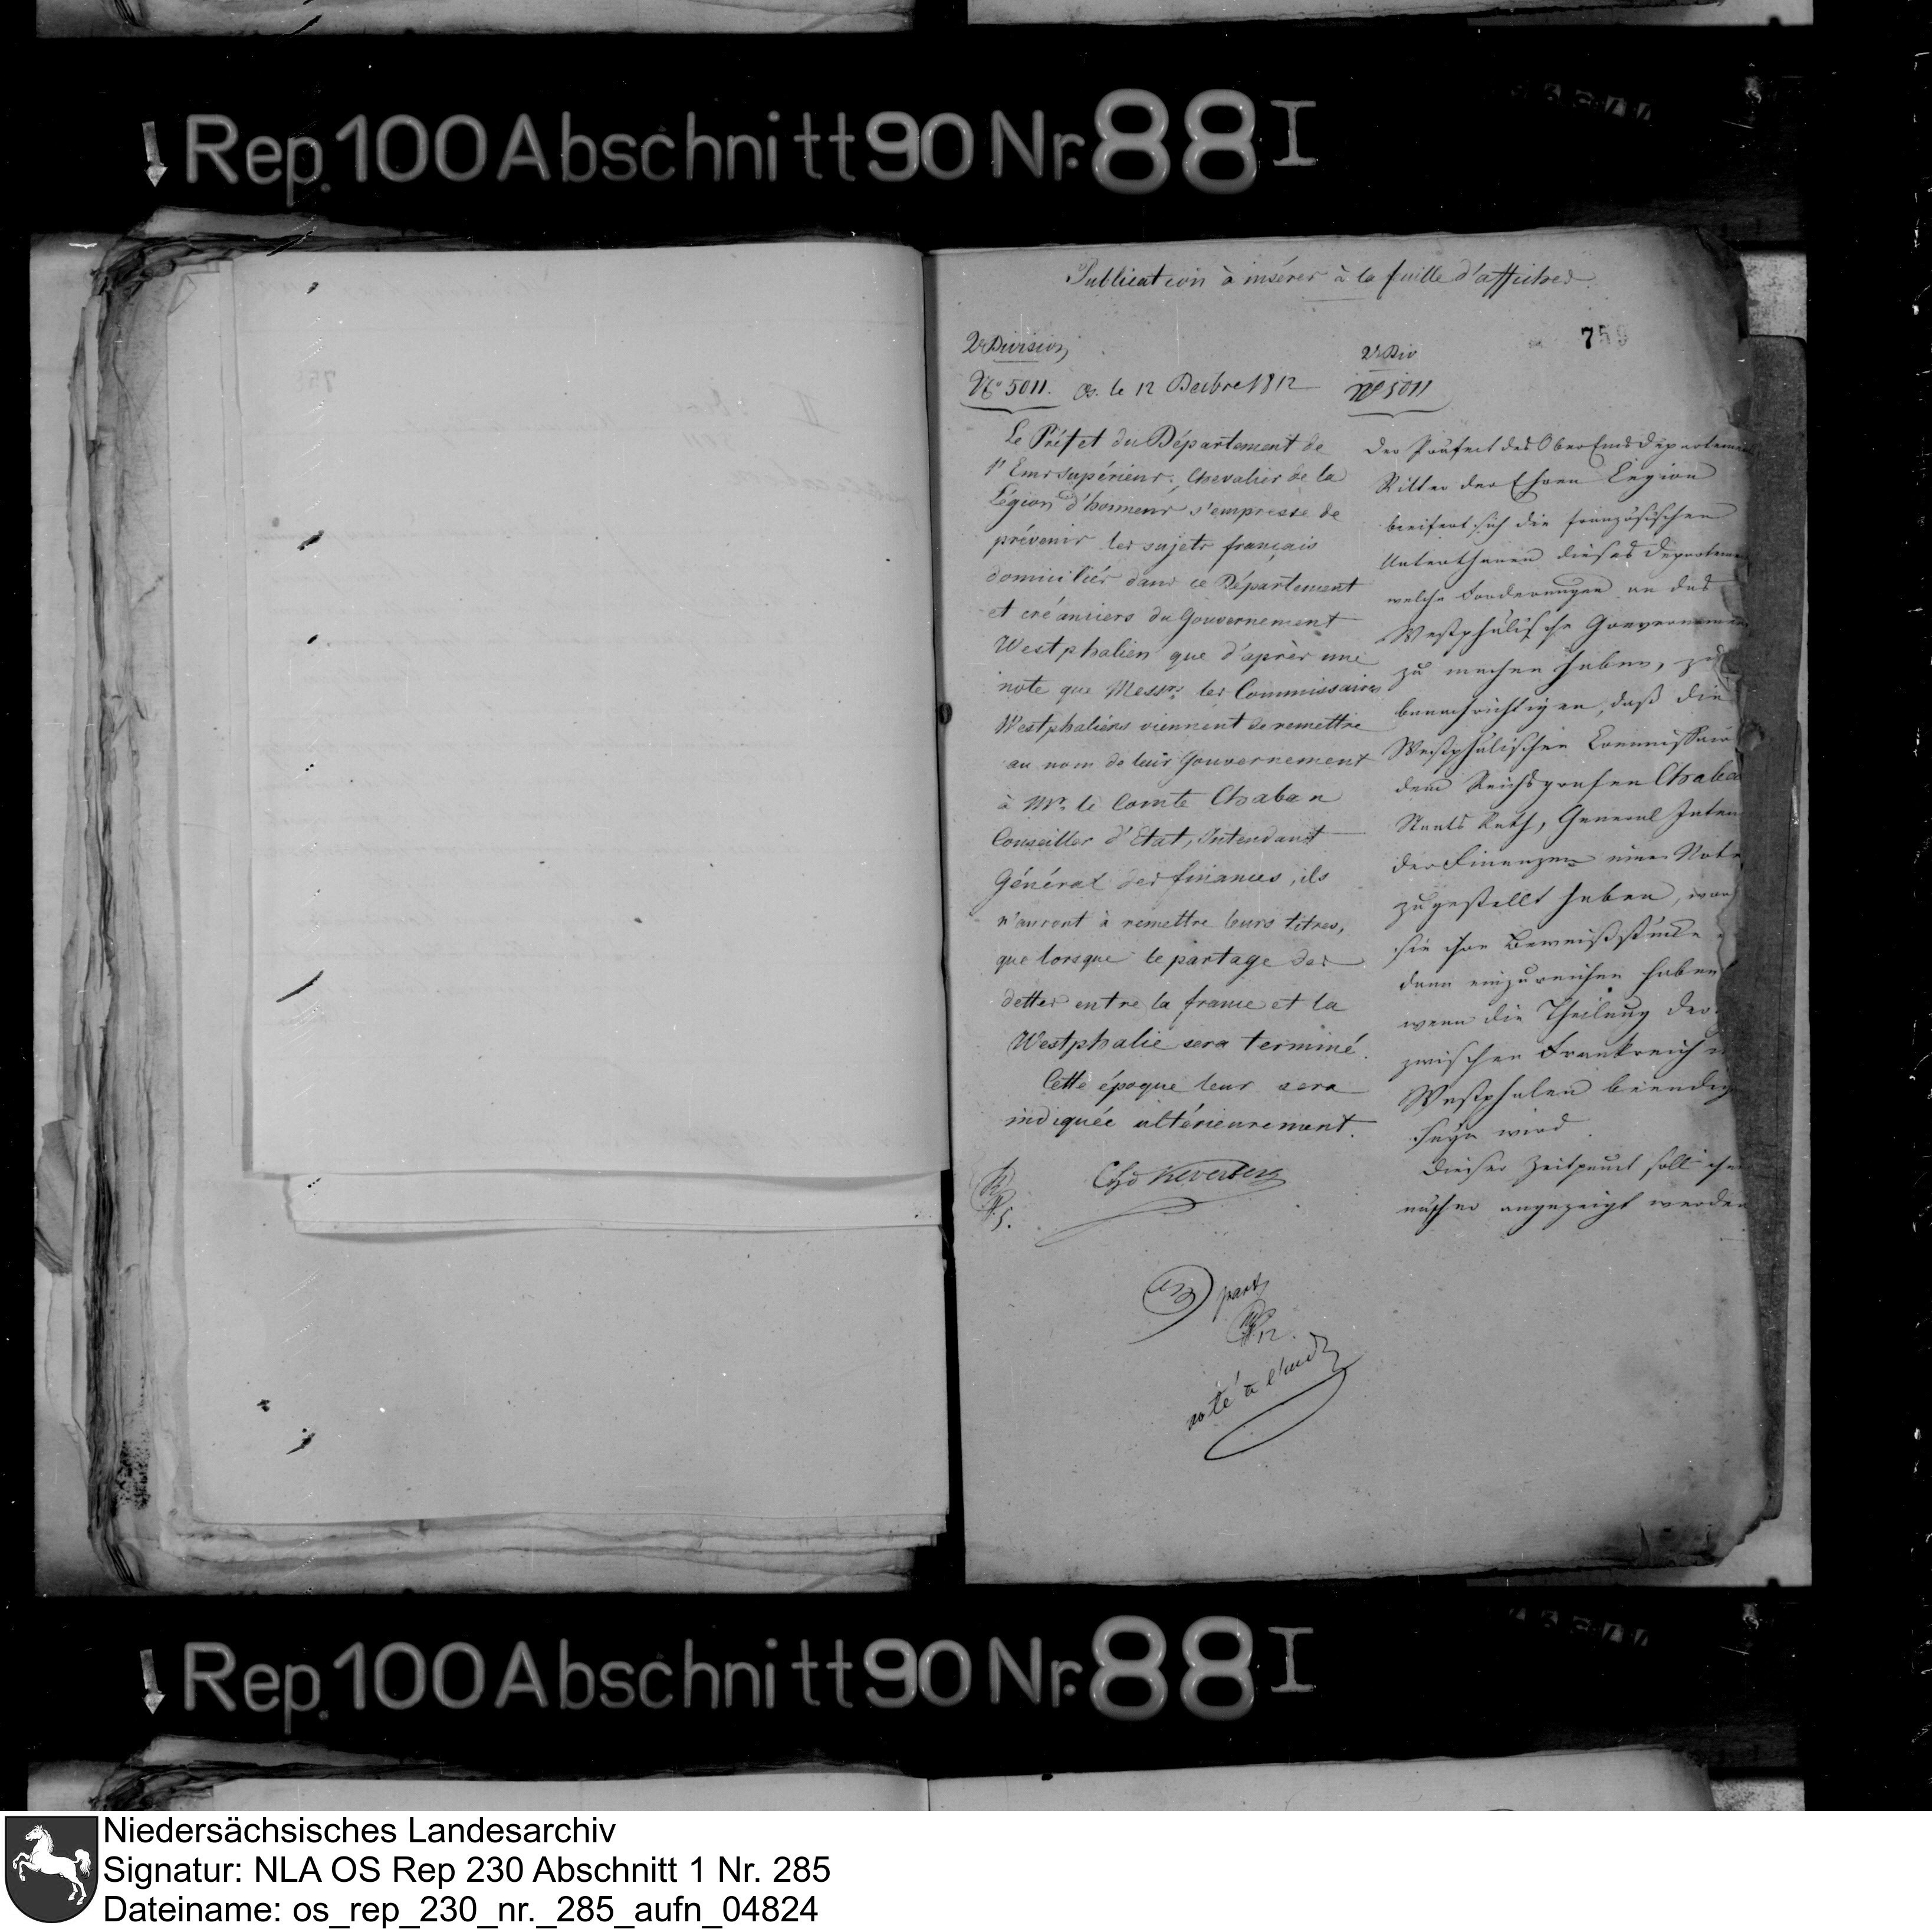 Rep. 100 Abschnitt 90 Nr. 88 I
Publication à insérer à la feuille d'affiches
759
2e Division
No 5011. Os. le 12 Decbre 1812
Le Préfet du Département de
l'Ems supérieur, Chevalier de la
Légion d'honneur s'empresse de
prévenir les sujets français
domiciliés dans ce Département
et créanciers du Gouvernement
Westphalien que d'après une
note que Messrs les Commissaires
Westphaliens viennent de remettre
au nom de leur Gouvernement
à Mr. le Comte Chaban
Conseiller d'Etat, Intendant
Général des finances, ils
n'auront à remettre leurs titres,
que lorsque le partage des
dettes entre la france et la
Westphalie sera terminé.
Cette époque leur sera
indiquée ultérieurement.
Keverberg
2e Div
No 5011
Der Präfect des Ober Ems Departements
Ritter der Ehren Legion
beeifert sich die französischen
Unterthanen dieses Departemen
welche Forderungen an das
Westphälische Gouvernemen
zu machen haben, zu
benachrichtigen, daß die
Westphälischen Commissair
dem Reichsgrafen Chaban
Staats Rath, General Inten
der Finanzen eine Note
zugestellt haben,
sie ihre Beweißstücke
dann einzureichen haben
wenn die Theilung der
zwischen Frankreich u
Westphalen beendig
seyn wird.
Dieser Zeitpunct soll ihn
näher angezeigt werden
part
12.
noté à l'ind
Rep. 100 Abschnitt 90 Nr. 88 I
Niedersächsisches Landesarchiv
Signatur: NLA OS Rep 230 Abschnitt 1 Nr. 285
Dateiname: os_rep_230_nr._285_aufn_04824